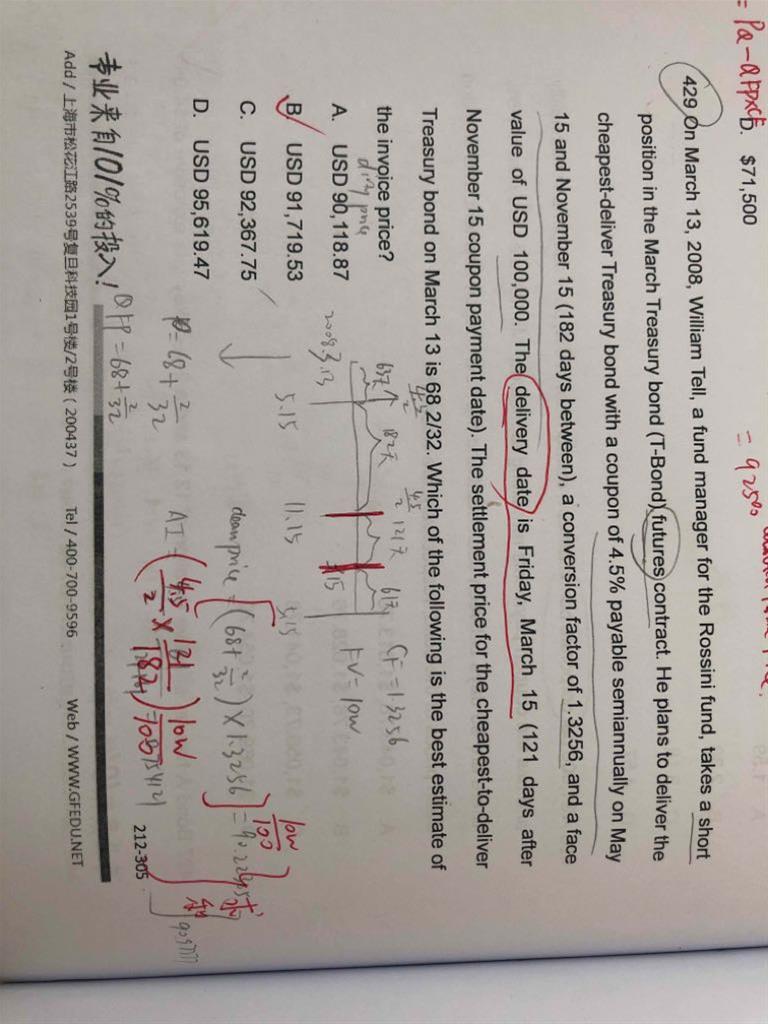 = Pa-QFPXCF
D. $71,500
= 92500
429 On March 13, 2008, William Tell, a fund manager for the Rossini fund, takes a short
position in the March Treasury bond (T-Bond) futures contract. He plans to deliver the
cheapest-deliver Treasury bond with a coupon of 4.5% payable semiannually on May
15 and November 15 (182 days between), a conversion factor of 1.3256, and a face
value of USD 100,000. The delivery date is Friday, March 15 (121 days after
November 15 coupon payment date). The settlement price for the cheapest-to-deliver
Treasury bond on March 13 is 68 2/32. Which of the following is the best estimate of
the invoice price?
dirty price
A. USD 90,118.87
B. USD 91,719.53
C. USD 92,367.75
D. USD 95,619.47
63天 182天 121天 61天
2008.3.13
5.15 11.15 3.15
CF=1.3256
FV=10W
P=68+2/32
QFP=68+2/32
clean price = (68+2/32)×1.3256 = 90.22
10W/100
AI = (4.5/2 × 121/182) 10W/100
212-305
专业来自101%的投入!
Add / 上海市松花江路2539号复旦科技园1号楼/2号楼 ( 200437 ) Tel / 400-700-9596 Web / WWW.GFEDU.NET